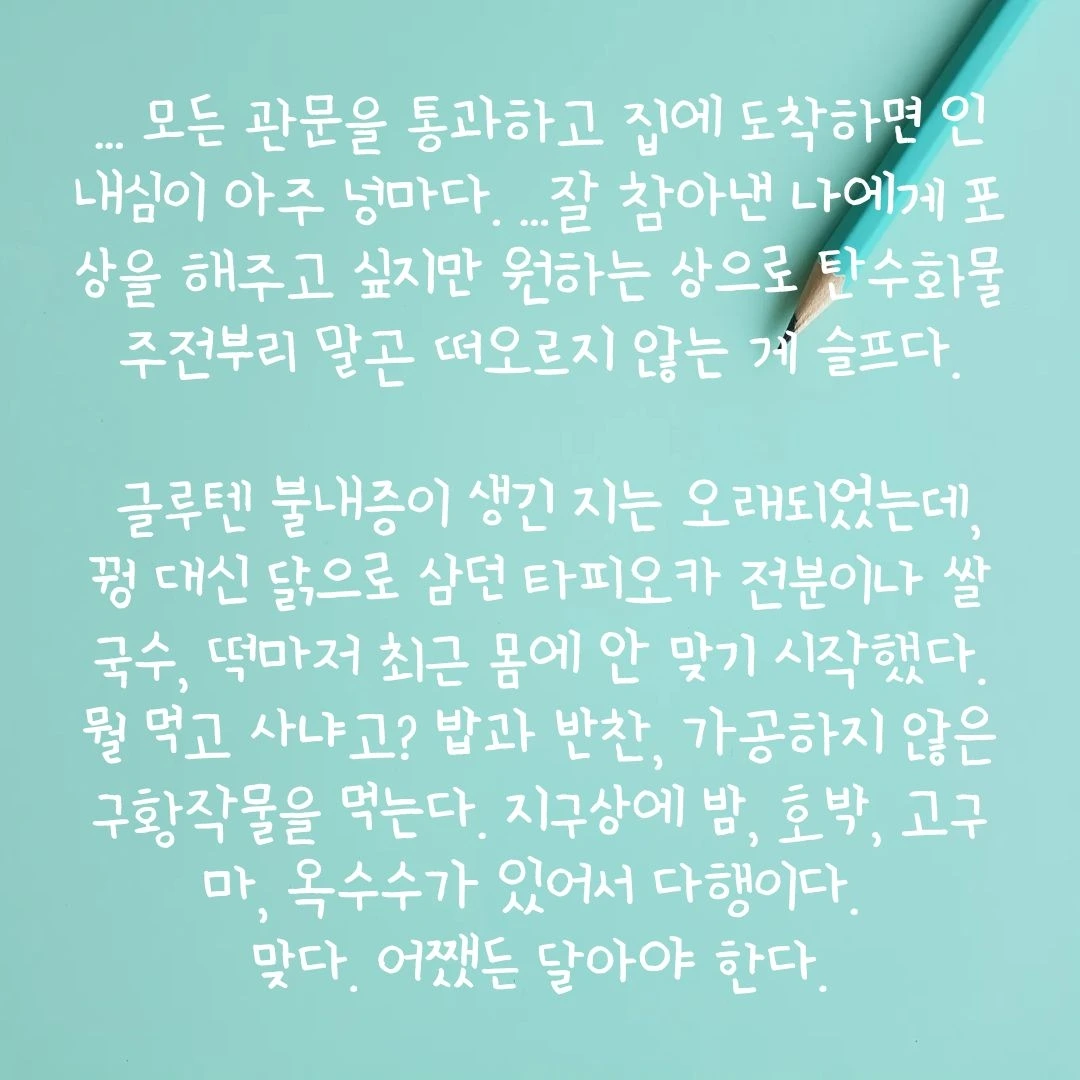 ... 모든 관문을 통과하고 집에 도착하면 인
내심이 아주 넝마다. ...잘 참아낸 나에게 포
상을 해주고 싶지만 원하는 상으로 탄수화물
주전부리 말곤 떠오르지 않는 게 슬프다.
글루텐 불내증이 생긴 지는 오래되었는데,
꿩 대신 닭으로 삼던 타피오카 전분이나 쌀
국수, 떡마저 최근 몸에 안 맞기 시작했다.
뭘 먹고 사냐고? 밥과 반찬, 가공하지 않은
구황작물을 먹는다. 지구상에 밤, 호박, 고구
마, 옥수수가 있어서 다행이다.
맞다. 어쨌든 달아야 한다.